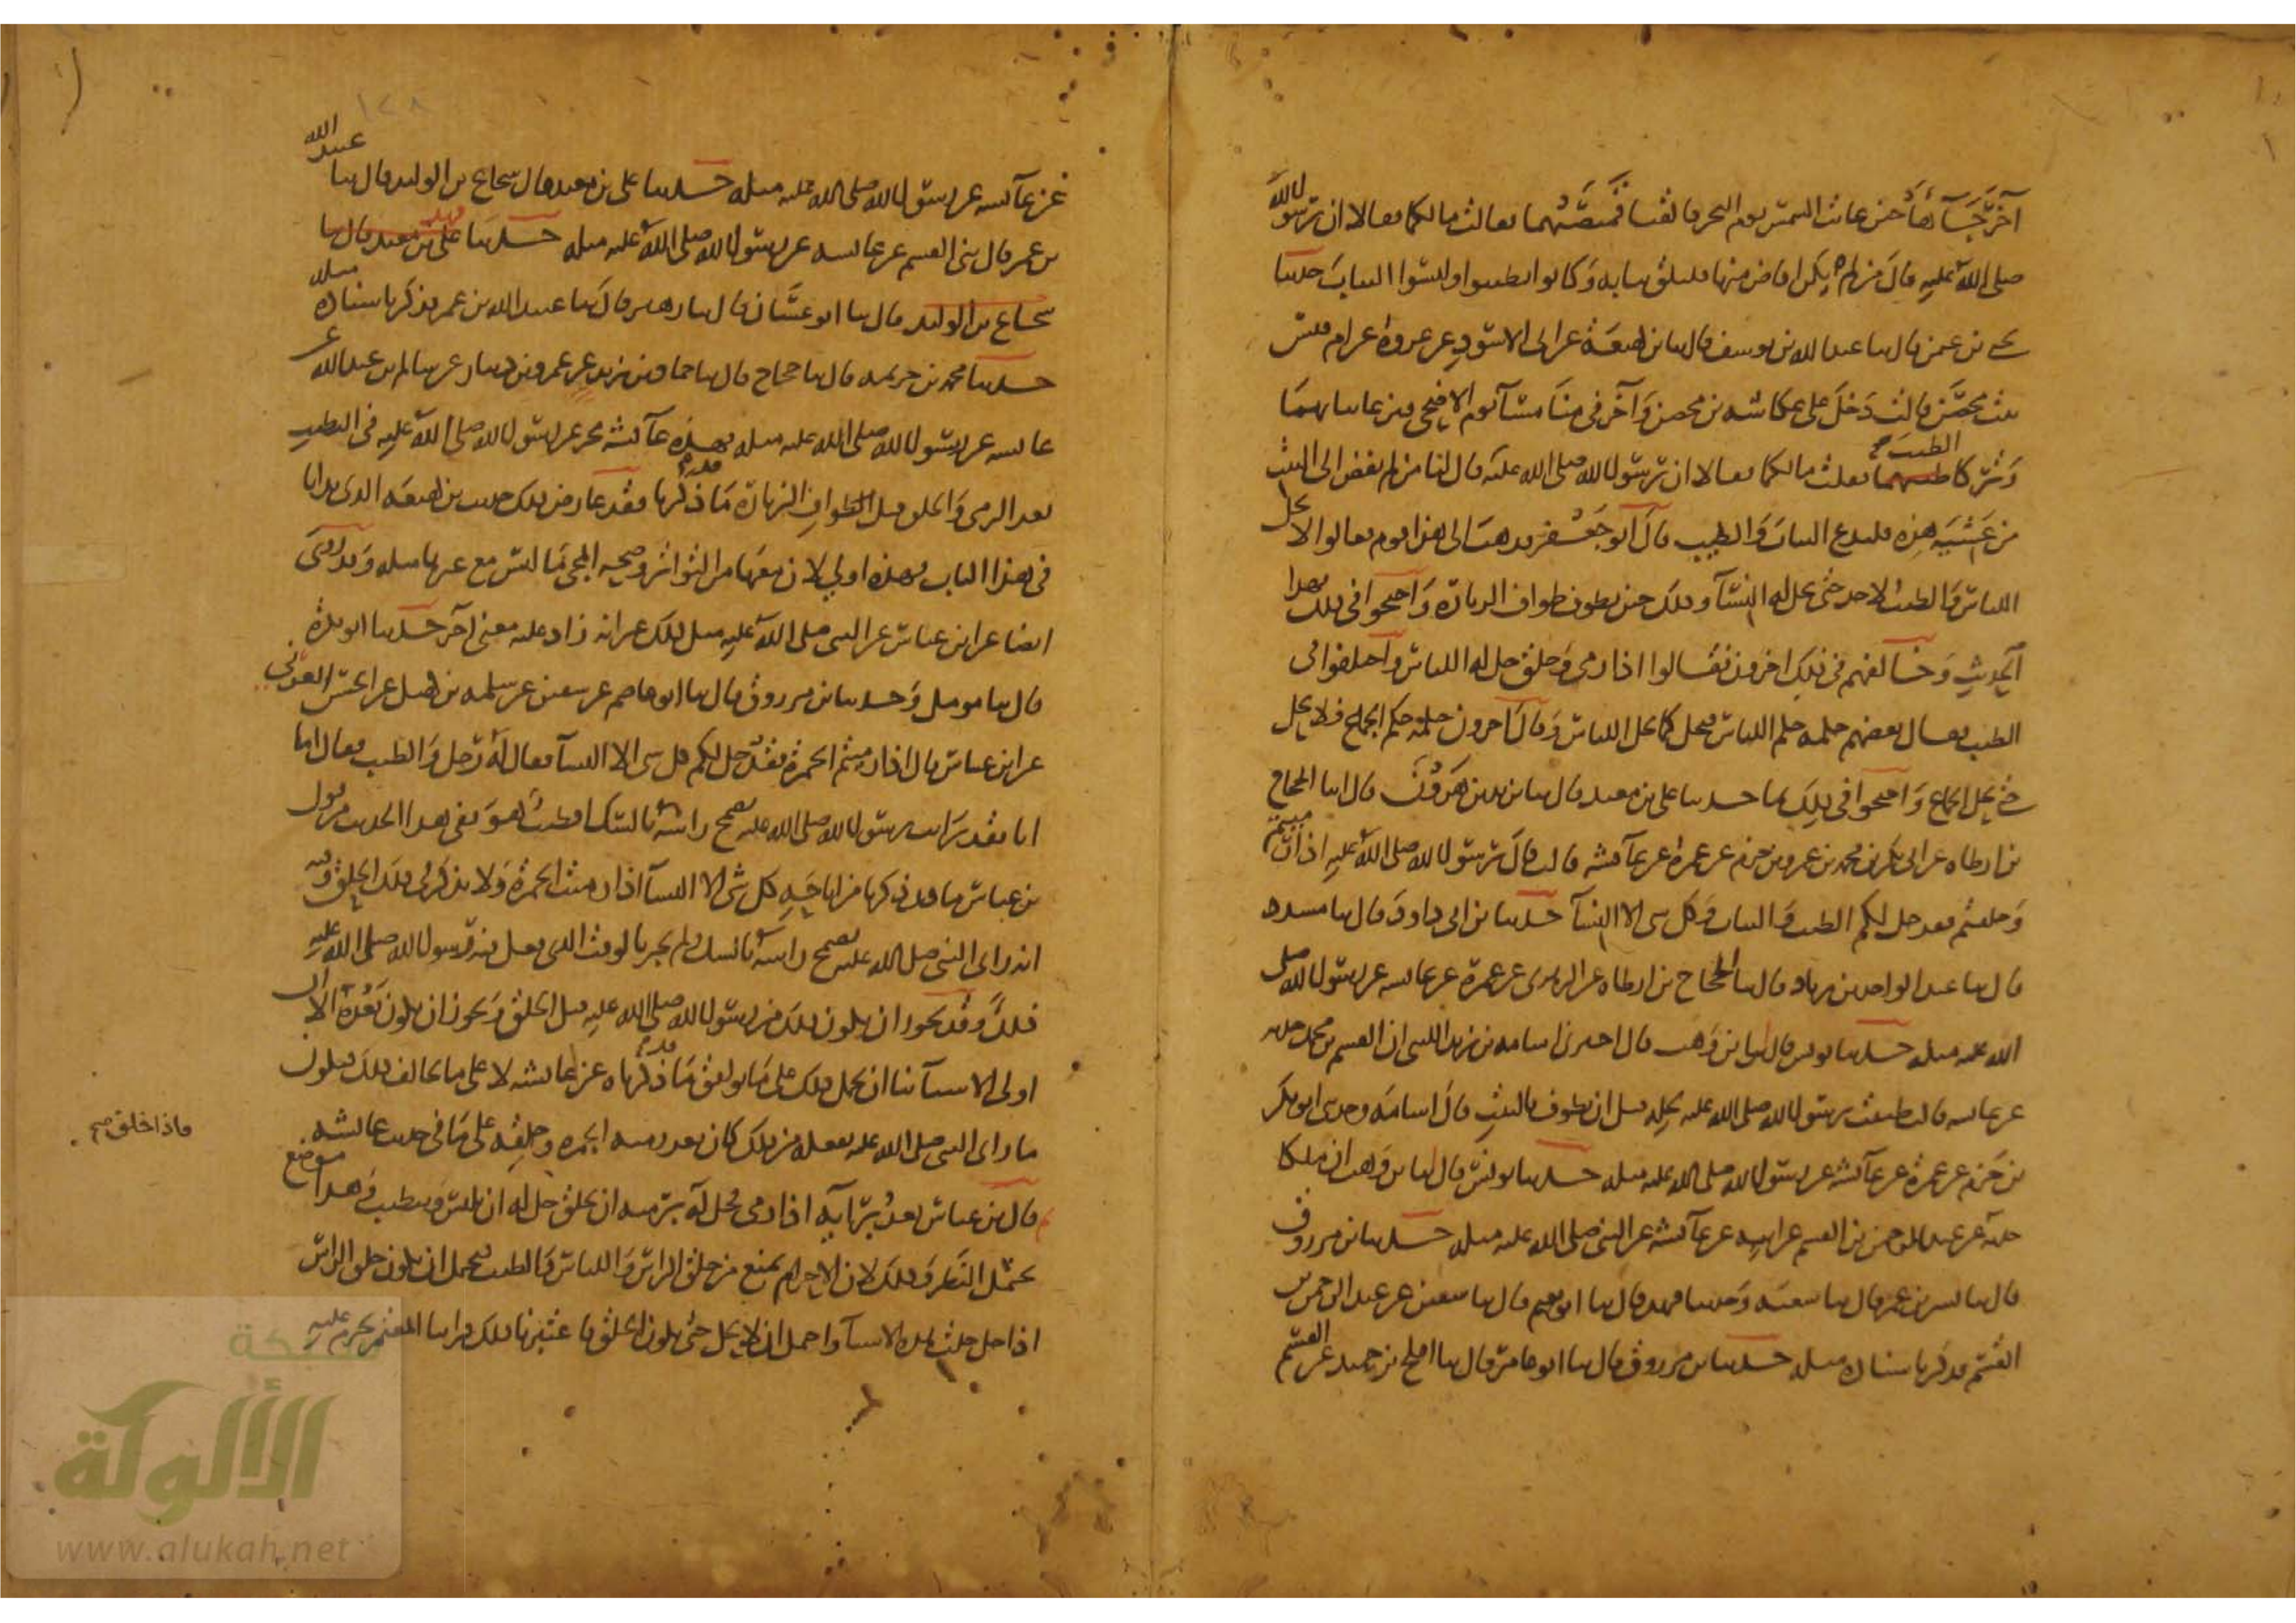 آخر جآاها حين غابت الشمس يوم النحر فالقيا قمصهما فقالت ما لكما فقالا ان رسول الله
صلى الله عليه قال من لم يكن افاض منها فليلق ثيابه وكانوا تطيبوا ولبسوا الثياب حدثنا
يحيى بن عثمن قال ثنا عبد الله بن يوسف قال ثنا بن لهيعة عن ابي الاسود عن عروة عن ام قيس
بنت محصن قالت دخل علي عكاشة بن محصن وآخر في منا مسآ يوم الاضحى فنزعا ثيابهما
وتركا الطيب فقلت ما لكما فقالا ان رسول الله صلى الله عليه قال لنا من لم يفض الى البيت
من عشية هذه فليدع الثياب والطيب قال ابو جعفر فذهب الى هذا قوم فقالوا لا يحل
اللباس والطيب لاحد حتى يحل له النسآ وذلك حين يطوف طواف الزيارة واحتجوا في ذلك بهذا
الحديث وخالفهم في ذلك اخرون فقالوا اذا رمى وحلق حل له اللباس واختلفوا في
الطيب فقال بعضهم حكمه حكم اللباس فيحل كما يحل اللباس وقال آخرون حكمه حكم الجماع فلا يحل
حتى يحل الجماع واحتجوا في ذلك بما حدثنا علي بن معبد قال ثنا يزيد بن هرون قال انا الحجاج
بن ارطاه عن ابي بكر بن محمد بن عمرو بن حزم عن عمرة عن عآئشه قالت قال رسول الله صلى الله عليه اذا رميتم
وحلقتم فقد حل لكم الطيب والثياب وكل شي الا النسآ حدثنا بن ابي داود قال ثنا مسدد
قال ثنا عبد الواحد بن زياد قال ثنا الحجاج بن ارطاه عن الزهرى عن عمرة عن عايشه عن رسول الله صلى
الله عليه مثله حدثنا يونس قال انا بن وهب قال اخبرني اسامه بن زيد الليثي ان القسم بن محمد حدثه
عن عايشه قالت طيبت رسول الله صلى الله عليه لحله قبل ان يطوف بالبيت قال اسامه وحدثني ابو بكر
بن حزم عن عمرة عن عآئشه عن رسول الله صلى الله عليه مثله حدثنا يونس قال انا بن وهب ان ملكا
حدثه عن عبد الرحمن بن القسم عن ابيه عن عآئشه عن النبي صلى الله عليه مثله حدثنا بن مرزوق
قال ثنا بشر بن عمر قال ثنا شعبه وحدثنا فهد قال ثنا ابو نعيم قال ثنا سفين عن عبد الرحمن بن
القسم فذكر باسناده مثله حدثنا بن مرزوق قال ثنا ابو عامر قال ثنا افلح بن حميد عن القسم
عن عآئشه عن رسول الله صلى الله عليه مثله حدثنا علي بن معبد قال ثنا شجاع بن الوليد قال ثنا عبيد الله
بن عمر قال ثنى القسم عن عايشه عن رسول الله صلى الله عليه مثله حدثنا علي بن معبد قال ثنا
شجاع بن الوليد قال ثنا ابو غسان قال ثنا زهير قال ثنا عبيد الله بن عمر فذكر باسناده مثله
حدثنا محمد بن خزيمه قال ثنا حجاج قال ثنا حماد بن زيد عن عمرو بن دينار عن سالم بن عبد الله عن
عايشه عن رسول الله صلى الله عليه مثله فهذه عآئشه تخبر عن رسول الله صلى الله عليه في التطيب
بعد الرمي والحلق قبل طواف الزيارة بما قد ذكرنا فقد عارض ذلك حديث بن لهيعه الذى بدانا
في هذا الباب فهذه اولي لان معها من التواتر وصحه المجي ما ليس مع غيرها مثله وقد روى
ايضا عن ابن عباس عن النبي صلى الله عليه مثل ذلك غير انه زاد عليه معنى آخر حدثنا ابو بكرة
قال ثنا مومل وحدثنا بن مرزوق قال ثنا ابو عاصم عن سفين عن سلمه بن كهيل عن الحسن العرني
عن ابن عباس قال اذا رميتم الجمرة فقد حل لكم كل شي الا النسآ فقال له رجل والطيب فقال اما
انا فقد رايت رسول الله صلى الله عليه يضمخ راسه بالسك افطيب هو ففي هذا الحديث من قول
بن عباس ما قد ذكرنا من اباحة كل شي الا النسآ اذا رميت الجمرة ولا يذكر في ذلك الحلق وفيه
انه راى النبي صلى الله عليه يضمخ راسه بالسك ولم يخبر بالوقت الذى فعل فيه رسول الله صلى الله عليه
ذلك وقد يجوز ان يكون ذلك من رسول الله صلى الله عليه قبل الحلق ويجوز ان يكون بعده الا ان
اولى الاشيآ بنا ان نحمل ذلك على ما يوافق ما قد ذكرناه عن عايشه لا على ما يخالف ذلك فيكون
ما راى النبي صلى الله عليه يفعله من ذلك كان بعد رميه الجمره وحلقه على ما في حديث عايشه
ثم قال بن عباس بعد برايه اذا رمى فحل له برميه ان يحلق حل له ان يلبس ويتطيب وهذا موضع
يحتمل النظر وذلك لان الاحرام يمنع من حلق الراس واللباس والطيب فيحتمل ان يكون حلق الراس
اذا حل حلت هذه الاشيآ واحتمل ان لا يحل حتى يكون الحلق فاعتبرنا ذلك فراينا المعتمر يحرم عليه
فاذا حلق صح
الألوكة
www.alukah.net